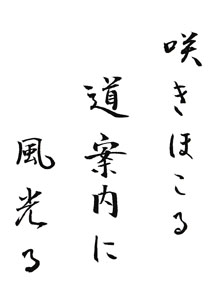 咲きほこる
道案内に
風光る